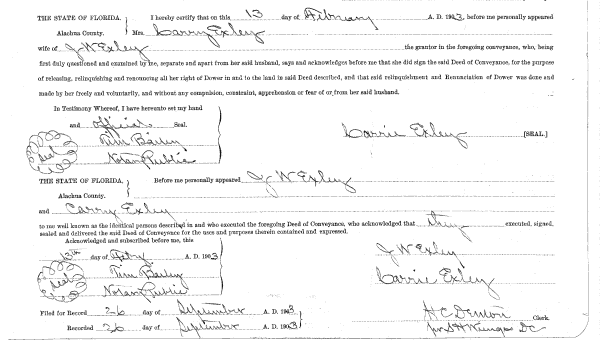 THE STATE OF FLORIDA, I hereby certify that on this 13 day of February A. D. 1903, before me personally appeared
Alachua County. Mrs Carry Exley
wife of J W Exley the grantor in the foregoing conveyance, who, being
first duly questioned and examined by me, separate and apart from her said husband, says and acknowledges before me that she did sign the said Deed of Conveyance, for the purpose
of releasing, relinquishing and renouncing all her right of Dower in and to the land in said Deed described, and that said relinquishment and Renunciation of Dower was done and
made by her freely and voluntarily, and without any compulsion, constraint, apprehension or fear of or from her said husband.
In Testimony Whereof, I have hereunto set my hand
and official Seal.
Carrie Exley [SEAL.]
Seal Tim Bailey
Notary Public
THE STATE OF FLORIDA, Before me personally appeared J W Exley
Alachua County.
and Carry Exley
to me well known as the identical persons described in and who executed the foregoing Deed of Conveyance, who acknowledged that they executed, signed,
sealed and delivered the said Deed of Conveyance for the uses and purposes therein contained and expressed.
Acknowledged and subscribed before me, this
13th day of Feby. A. D. 1903
J W Exley
Seal Tim Bailey
Carrie Exley
Notary Public
Filed for Record 26 day of September A. D. 1903
H C Denton Clerk.
Recorded 26 day of September A. D. 1903
DC